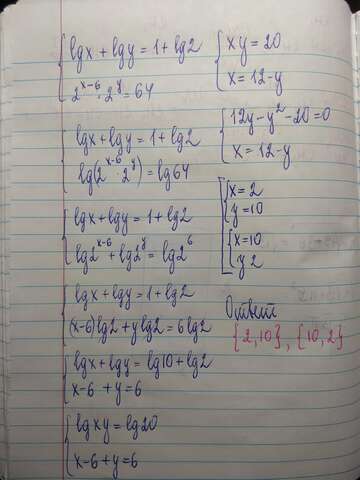 lgx + lgy = 1 + lg2
2^(x-6) · 2^y = 64
lgx + lgy = 1 + lg2
lg(2^(x-6) · 2^y) = lg64
lgx + lgy = 1 + lg2
lg2^(x-6) + lg2^y = lg2^6
lgx + lgy = 1 + lg2
(x-6)lg2 + ylg2 = 6lg2
lgx + lgy = lg10 + lg2
x-6 + y = 6
lgxy = lg20
x-6+y = 6
xy = 20
x = 12-y
12y - y² - 20 = 0
x = 12-y
x = 2
y = 10
x = 10
y 2
Ответ
{2,10}, {10,2}